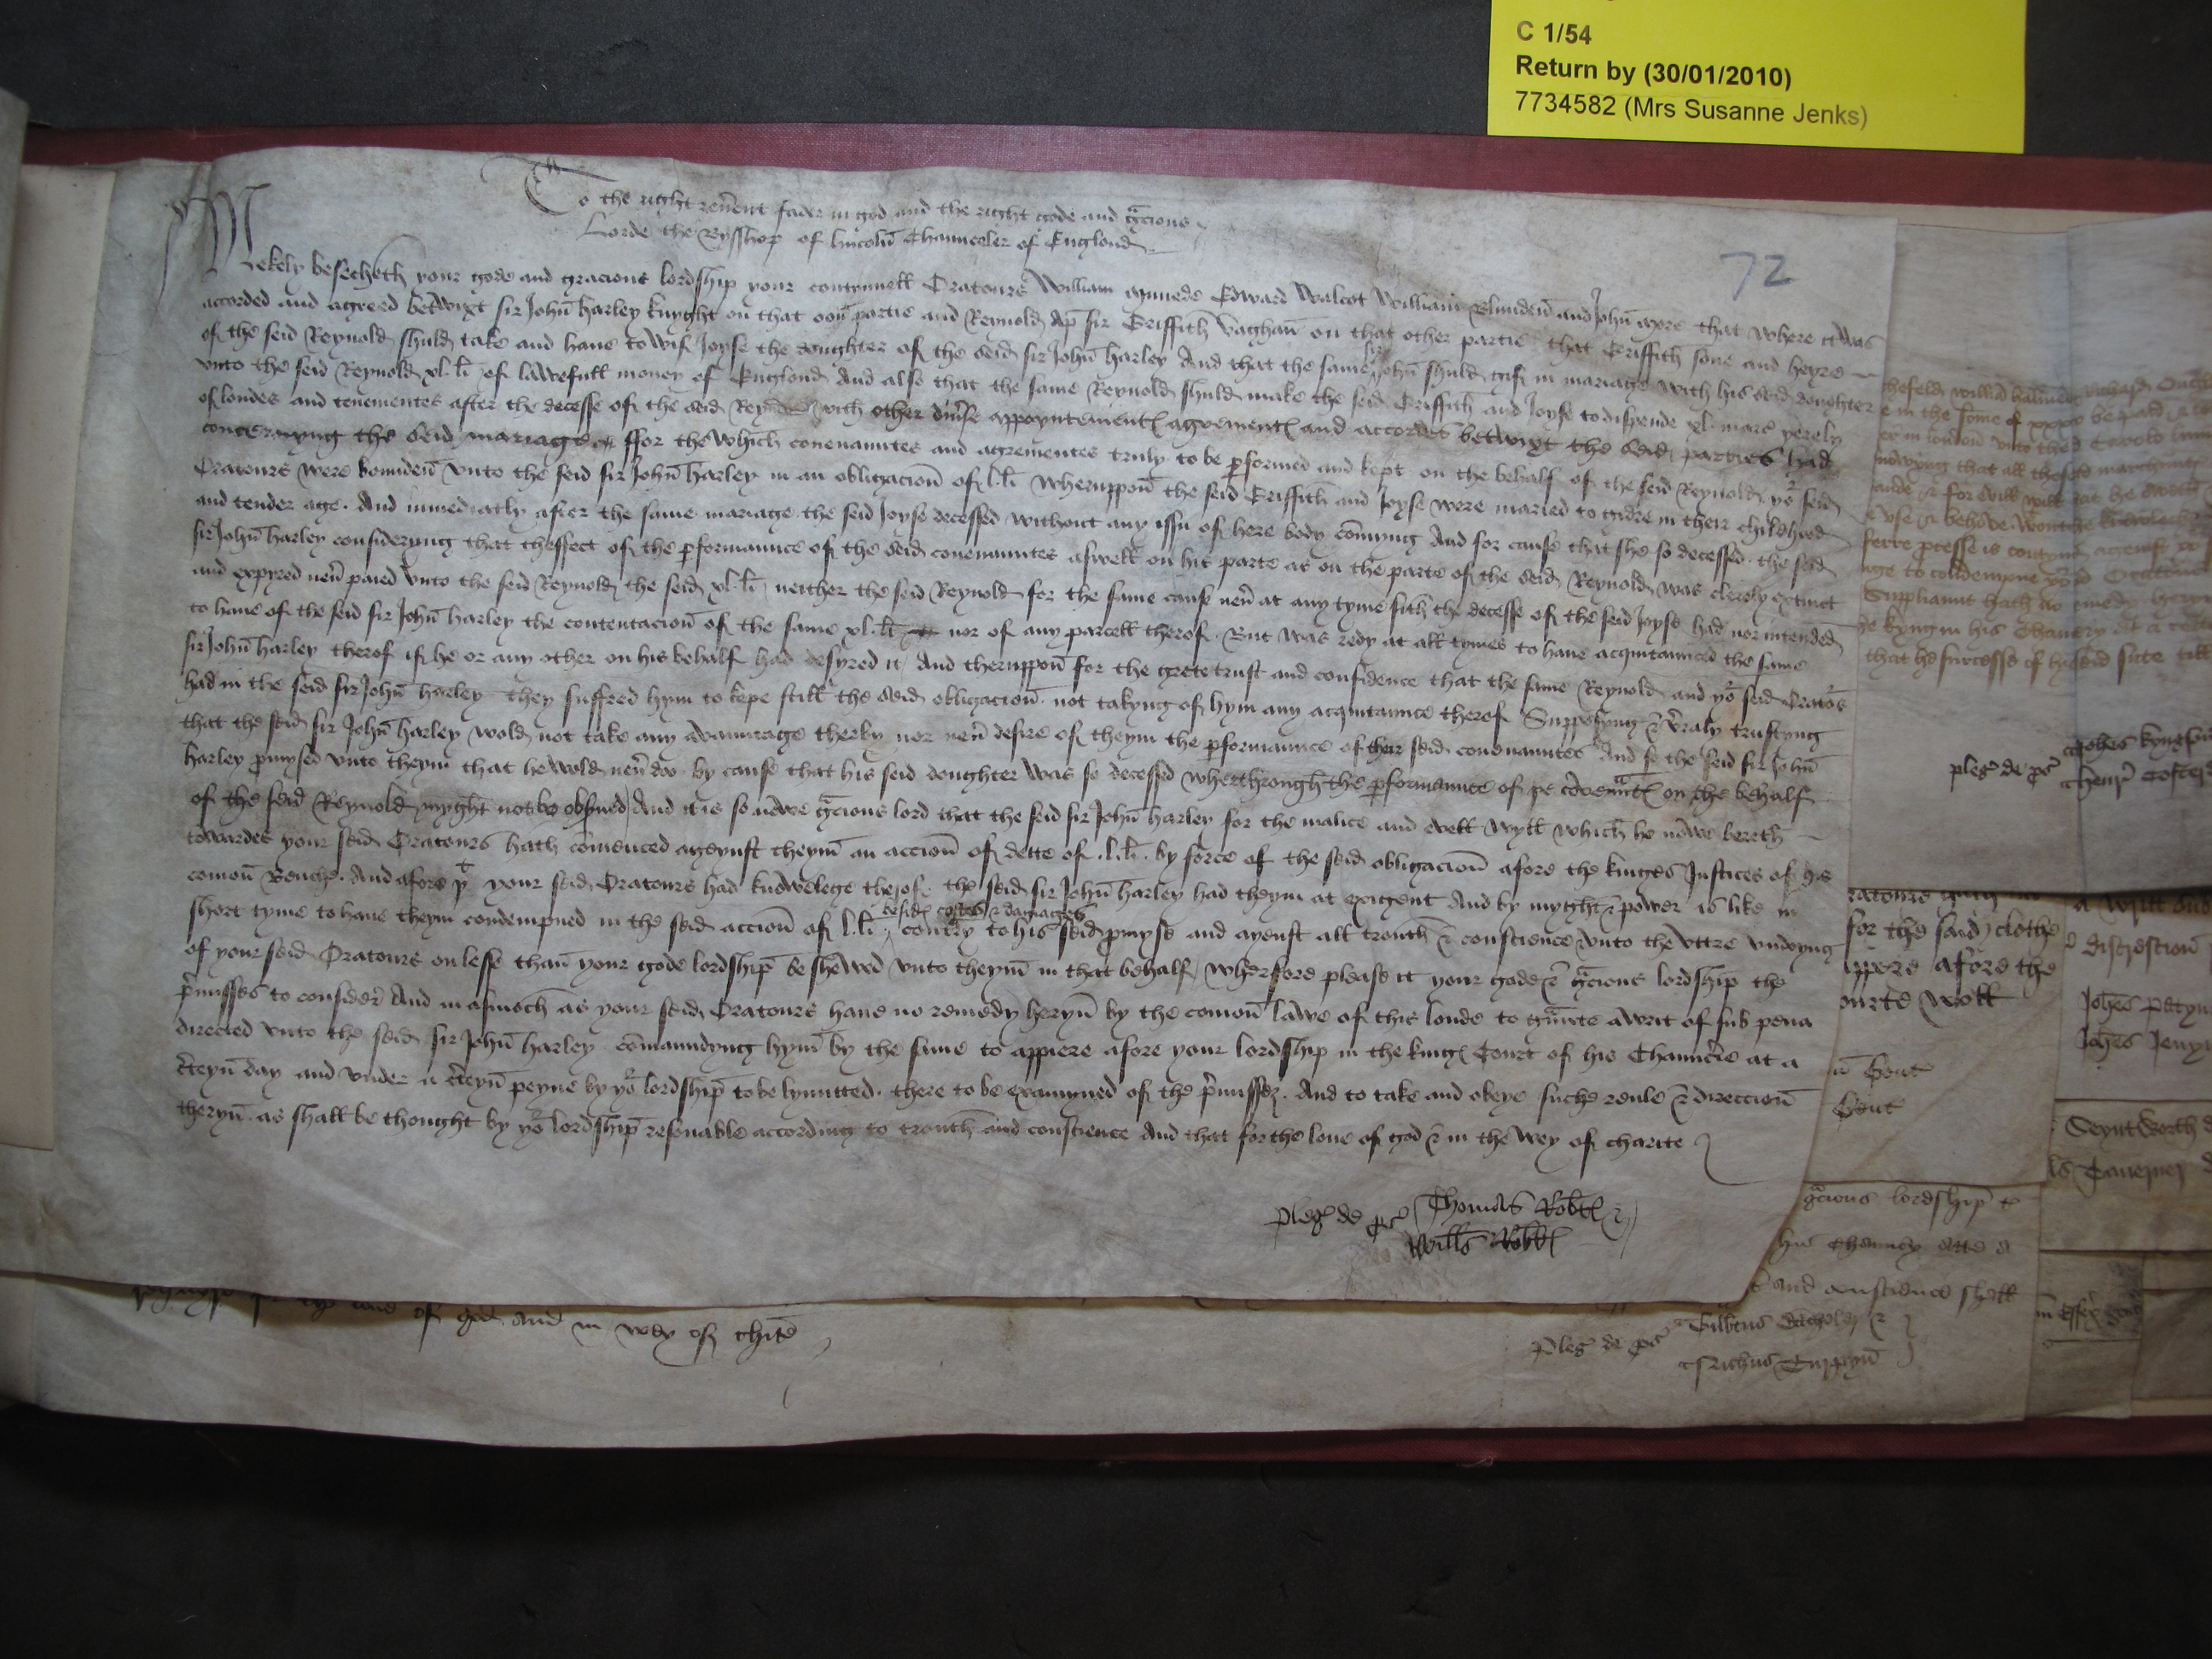 C 1/54
Return by (30/01/2010)
7734582 (Mrs Susanne Jenks)
72
To the right rev̄ent fader in god and the right gode and gͣcious
Lorde the Bysshop of lincoln̄ Chaunceler of Englond
Mekely besecheth your gode and gracious lordship your contynuell Oratours William Edward Walcot William Blunden̄ and John̄ that where it was
accorded and agreed betwixt sir John̄ harley knyght on̄ that oon̄ partie and Reynold Ap̄ sir Griffith Vaghan̄ on that other partie that Griffith sone and heyre
of the seid Reynold shuld take and haue to wif Joyse the doughter of the seid sir John̄ harley And that the same John̄ shuld gif in mariage with his seid doughter
vnto the seid Reynold xl. li of lawefull money of Englond And also that the same Reynold shuld make the seid Griffith and Joyse to dispende xl. marc yerely
of londes and tenementes after the decesse of the seid Reynold with other div̄se appoyntementꝭ agrementꝭ and accordes betwixt the seid parties had
concernyng the seid mariage ffor the which couenauntes and agrementes truly to be ꝑformed and kept on the behalf of the seid Reynold yoͬ seid
Oratours were bounden̄ vnto the seid sir John̄ harley in an obligacion̄ of l. li Wheruppon̄ the seid Griffith and Joyse were maried to gidre in their childhod
and tender age. And immediatly after the same mariage the seid Joyse decessed without any issu of here body com̄yng And for cause that she so decessed. the seid
sir John̄ harley consideryng that theffect of the ꝑformaunce of the seid couenauntes aswell on his parte as on the parte of the seid Reynold was clerely extinct
and expyred nev̄ paied vnto the seid Reynold the seid xl. li neither the seid Reynold for the same cause nev̄ at any tyme sith the decesse of the seid Joyse had nor intended
to haue of the seid sir John̄ harley the contentacion̄ of the same xl. li nor of any parcell therof. But was redy at all tymes to haue acquitaunced the same
sir John̄ harley therof if he or any other on his behalf had desyred it And theruppon̄ for the grete trust and confidence that the same Reynold and yoͬ seid Oratoͬs
had in the seid sir John̄ harley they suffred hym to kepe still the seid obligacion̄ not takyng of hym any acquitaunce therof Supposyng & v̄raly trustyng
that the seid sir John̄ harley wold not take any avauntage therby nor nev̄ desire of theym the ꝑformaunce of their seid couenauntes And so the seid sir John̄
harley ꝓmysed vnto theym that he wold nev̄ doo by cause that his seid doughter was so decessed wherthrough the ꝑformaunce of þe couenͣntꝭ on the behalf
of the seid Reynold myght not be obs̄ued And it is so nowe gͣcious lord that the seid sir John̄ harley for the malice and evell wyll which he nowe bereth
towardes your seid Oratours hath com̄enced ageynst theym̄ an accion̄ of dette of .l. li. by force of the seid obligacion̄ afore the kinges Justices of his
comon̄ Benche. And afore þͭ your seid Oratours had knowelege therof the seid sir John̄ harley had theym at exigent And by myght & power is like in
short tyme to haue theym condempned in the seid accion̄ of l. li besidꝭ costes & damages cont̄ry to his seid ꝓmyse and ayenst all trouth & conscience vnto the vttre vndoyng
of your seid Oratours on lesse than̄ your gode lordship̄ be shewed vnto theym̄ in that behalf Wherfore please it your gode & gͣcious lordship the
p̄misses to consider̄ And in asmoch as your seid Oratours haue no remedy heryn̄ by the comon̄ lawe of this londe to gͣunte a writ of sub pena
directed vnto the seid sir John̄ harley com̄aundyng hym̄ by the same to appiere afore your lordship in the kingꝭ Court of his Chaunc̄re at a
c̄teyn̄ day and vnder a c̄teyn̄ peyne by yoͬ lordship̄ to be lymitted. there to be examyned of the p̄misses. And to take and obeye suche reule & direccion̄
theryn̄ as shall be thought by yoͬ lordship̄ resonable according to trouth and conscience And that for the loue of god & in the wey of charite
Pleg̕ de ꝓs̕ Thomas Rob̄tꝭ &
Will̄s Rob̄tꝭ
of god and in wey of chite
Pleg̕ de ꝓs̕ Gilb̄tus &
Ric̄hus Turpyn̄
in the some of
that all
Suppliaunt hath no
he kyng in his Chauncery at a
that he surcesse of his seid sute till
pleg̕ de ꝓs̕ Joh̄es
henr̄
for the said clothe
appere afore the
courte woll
Gent
Gent
gͣcious lordship̄
his Chauncy atte a
and conscience shall
a writ
discrescion̄
Joh̄es
Joh̄es